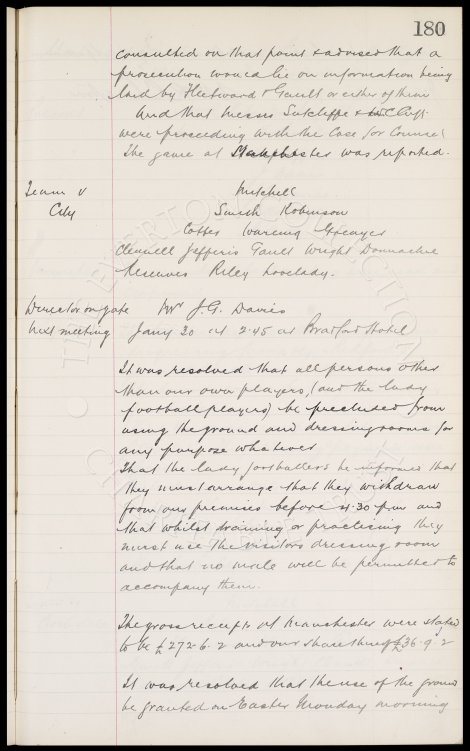 180
consulted on that point & advised that a
prosecution would lie on information being
laid by Fleetwood & Gault or either of them
And that Messrs Sutcliffe &
were proceeding with the Case for Counsel
The game at Manchester was reported.
Team v
City
Mitchell
Smith Robinson
Wareing Grenyer
Clennell Jefferis Gault Wright Donnachie
Reserves Riley Lovelady.
Director on gate
Next meeting
Mr J.G. Davies
Jany 30 at 2.45 at Bradford Hotel
It was resolved that all persons other
than our own players, (and the lady
football players) be precluded from
using the ground and dressing rooms for
any purpose whatever
That the lady footballers be informed that
they must arrange that they withdraw
from our premises before 4.30 pm and
that whilst training or practising they
must use the visitors dressing room
and that no male will be permitted to
accompany them.
The gross receipts at Manchester were stated
to be £272.6.2 and our share thereof £36.9.2
It was resolved that the use of the ground
be granted on Easter Monday morning
THE EVERTON COLLECTION